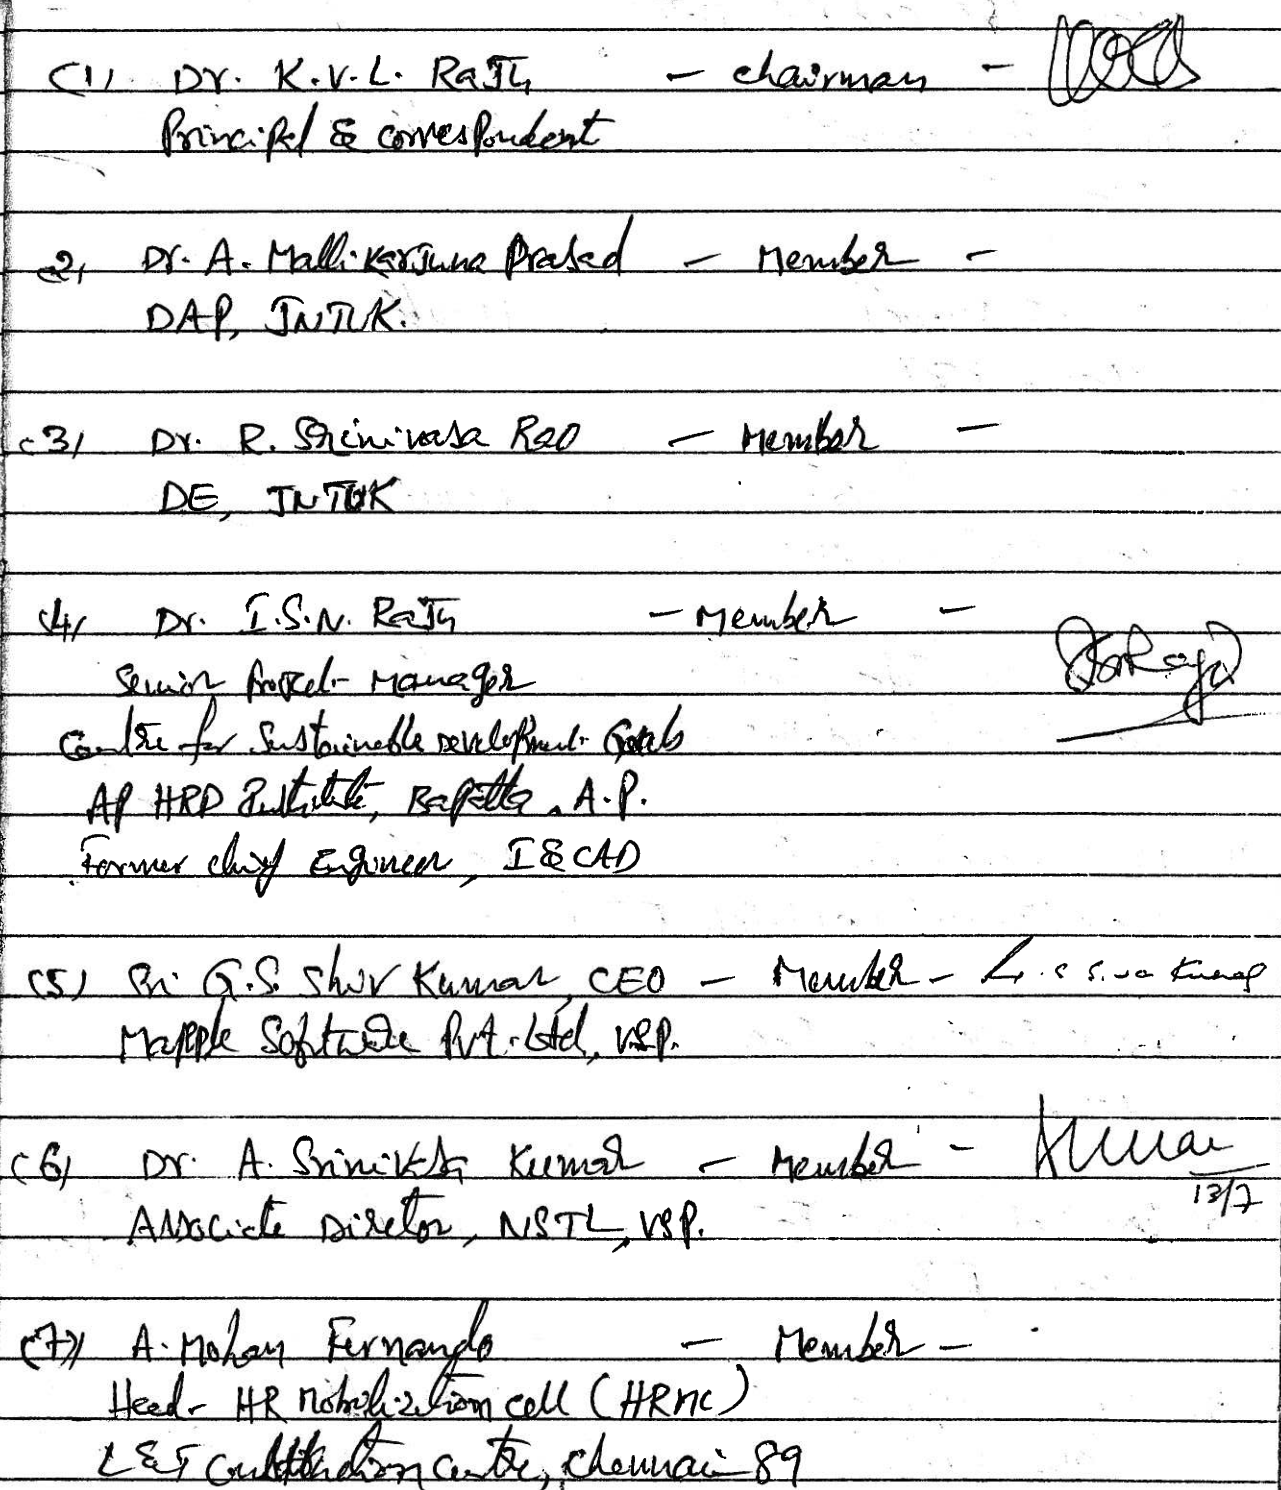 (1) Dr. K.V.L. Raju - chairman -
Principal & correspondent
(2) Dr. A. Mallikarjuna Prasad - Member -
DAP, JNTUK.
(3) Dr. R. Srinivasa Rao - Member -
DE, JNTUK
(4) Dr. I.S.N. Raju - Member -
Senior Project Manager
Centre for Sustainable Development Goals
AP HRD Institute, Bapatla, A.P.
Former chief Engineer, I & CAD
(5) Sri G.S. Shiv Kumar, CEO - Member - G.S Siva Kumar
Mapple Software Pvt. Ltd, VSP.
(6) Dr. A. Srinivas Kumar - Member - Kumar
13/7
Associate Director, NSTL, VSP.
(7) A. Mohan Fernando - Member -
Head - HR Mobilization cell (HRMC)
L&T Construction Centre, Chennai-89